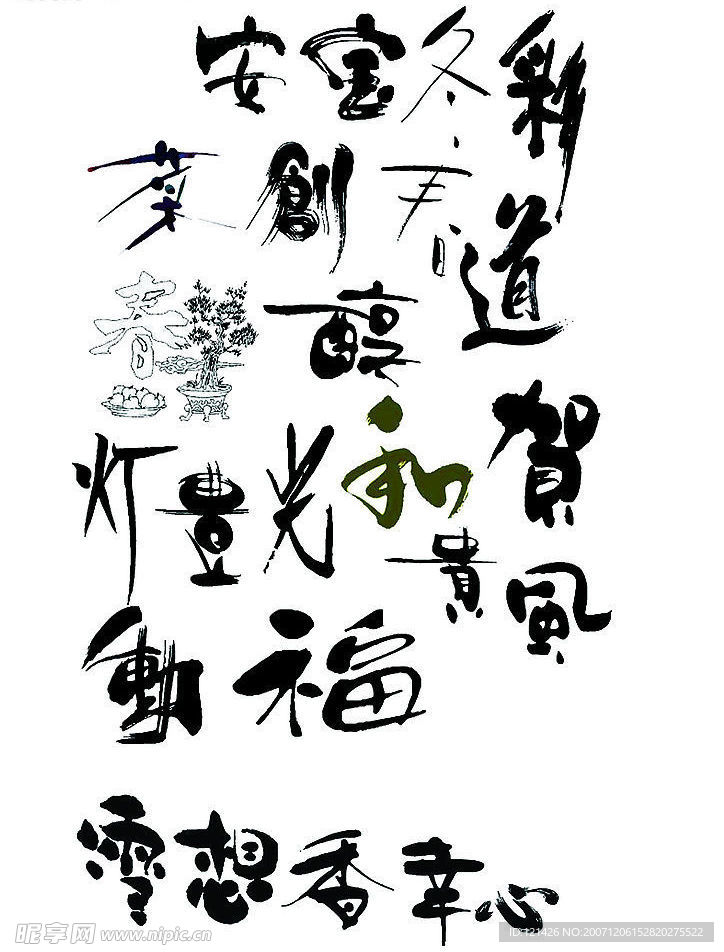 安宝冬彩
菜創春道
春醇
灯豊光和賀
貴風
動福
雪想香幸心
昵享网 www.nipic.cn
ID:121426 NO:20071206152820275522